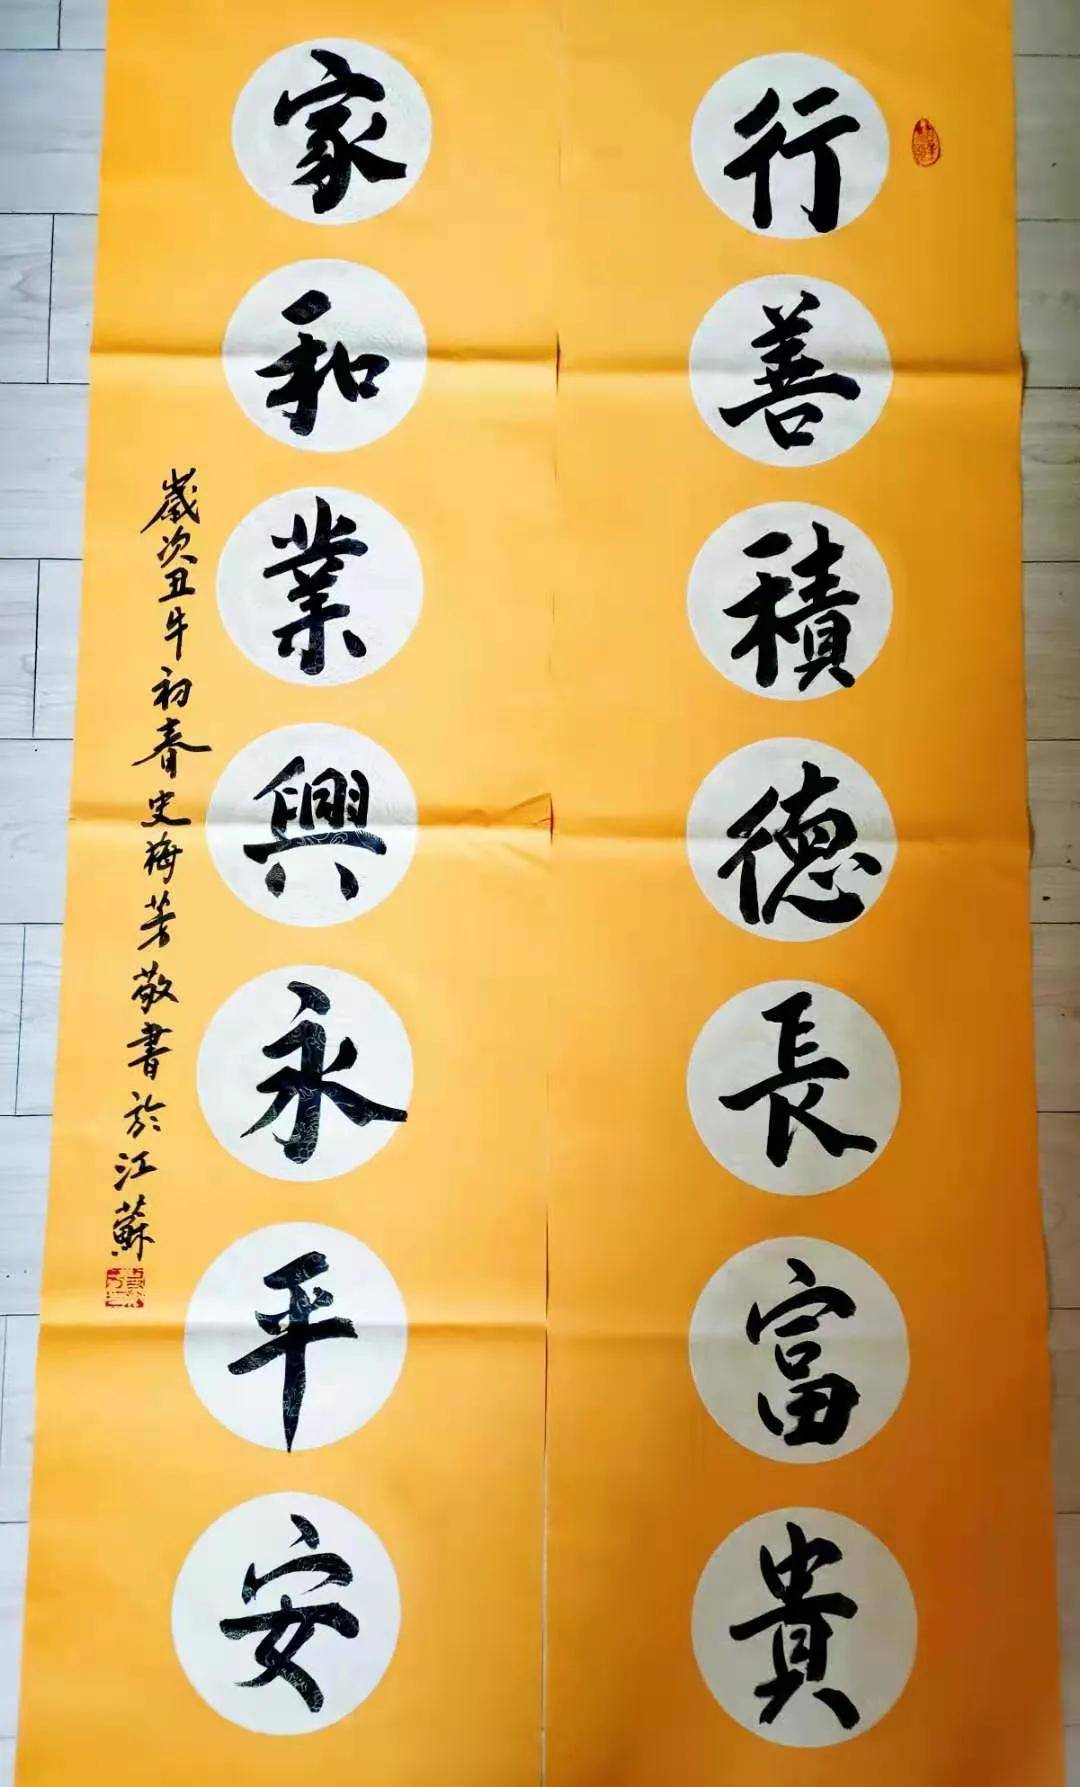 行善積德長富貴
家和業興永平安
歲次丑牛初春史梅芳敬書於江蘇